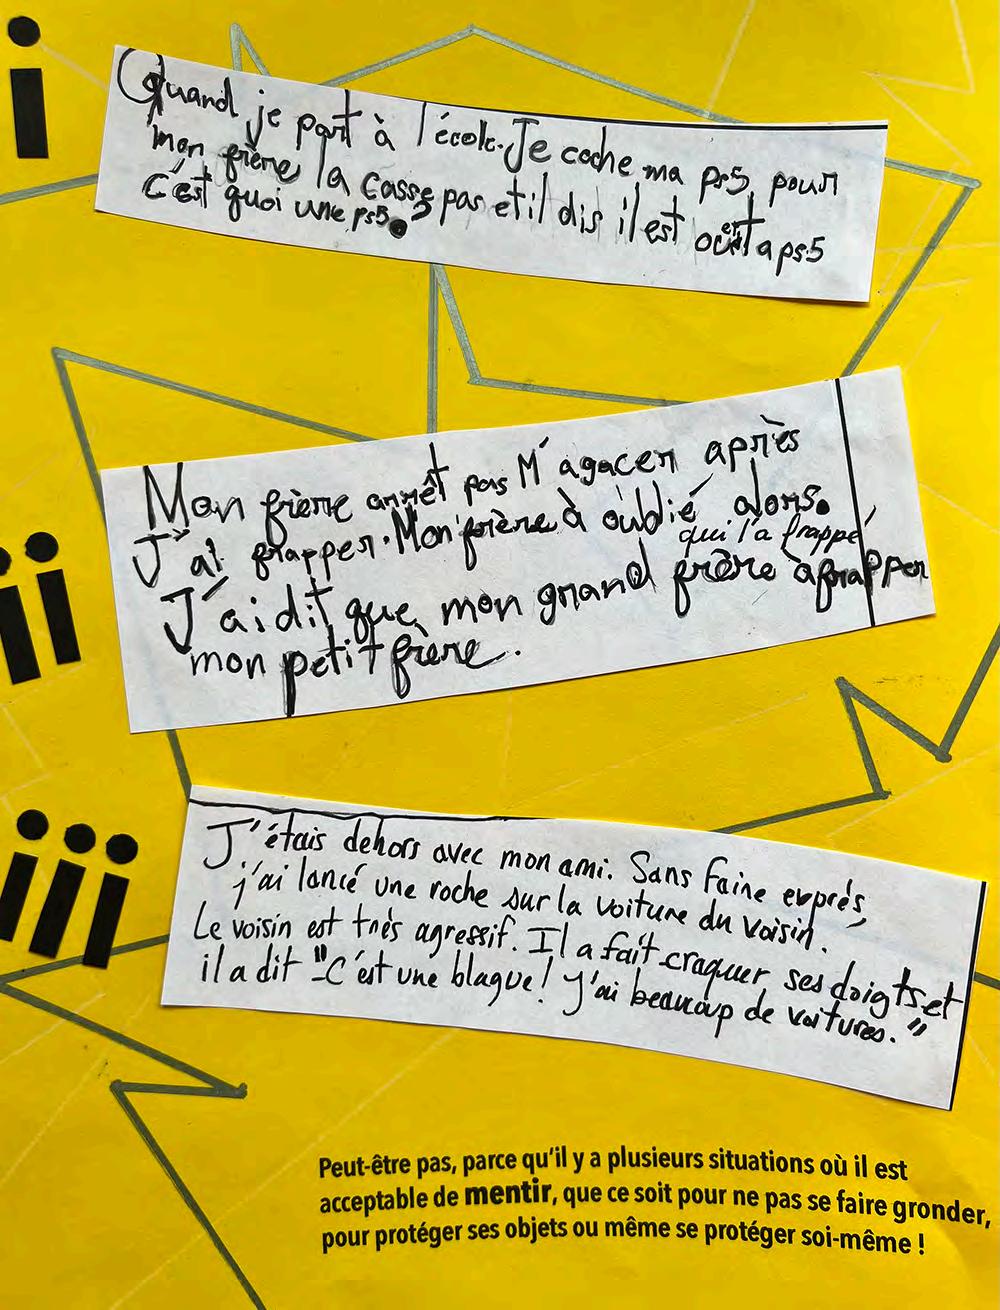 i
Quand je part à l'école. Je cache ma ps5 pour
mon frère la casse pas et il dis il est où est ta ps5
c'est quoi une ps5.?
ii
Mon frère arrêt pas M'agacer après
J'ai frapper. Mon frère à oublié alors.
qui l'a frappé
J'ai dit que mon grand frère à frapper
mon petit frère.
iii
J'étais dehors avec mon ami. Sans faire exprés,
j'ai lancé une roche sur la voiture du voisin.
Le voisin est très agressif. Il a fait craquer ses doigts et
il a dit "C'est une blague! J'ai beaucoup de voitures."
Peut-être pas, parce qu'il y a plusieurs situations où il est
acceptable de mentir, que ce soit pour ne pas se faire gronder,
pour protéger ses objets ou même se protéger soi-même !